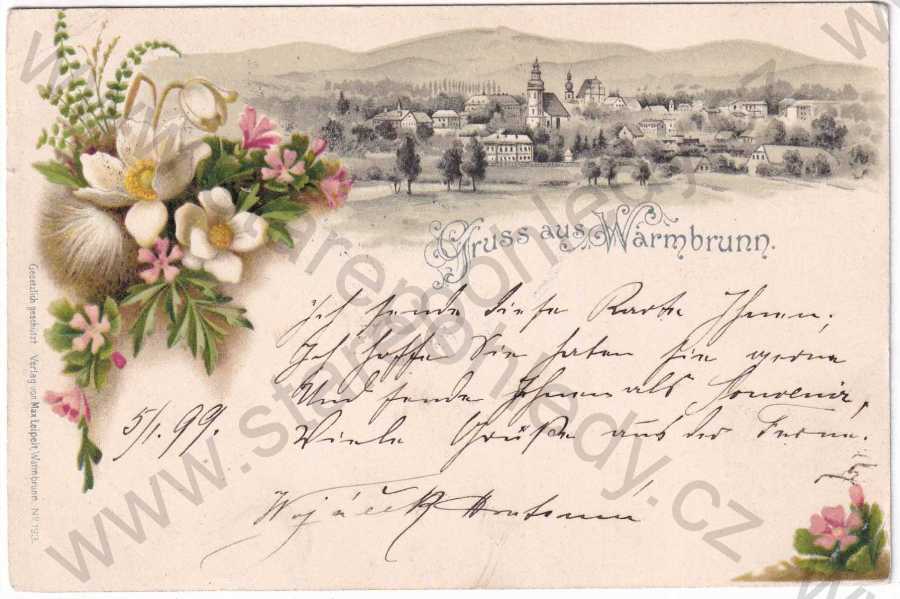 Gruss aus Warmbrunn.
Ich sende diese Karte Ihnen,
Ich hoffe Sie haben sie gerne
Und sende Ihnen als Souvenir,
Viele Grüße aus der Ferne.
5/1. 99.
Wojáček
Gesetzlich geschützt. Verlag von Max Leipelt, Warmbrunn. No
www.starepohledy.cz